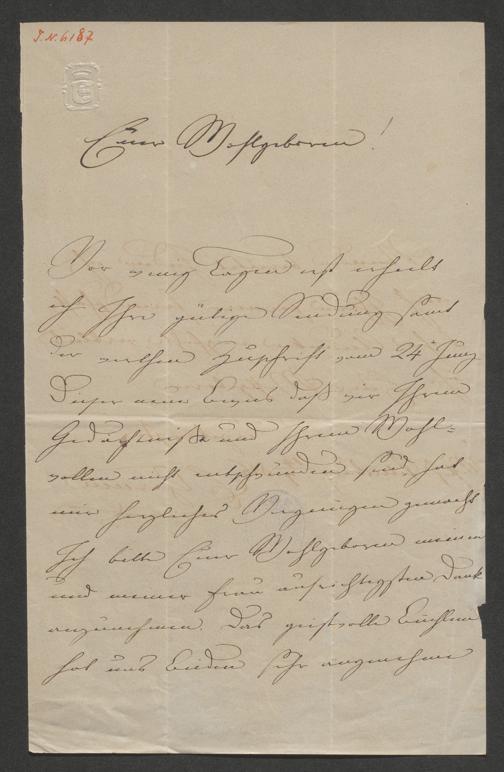 J.N. 6187
Euer Wohlgeboren!
Vor wenig Tagen erst erhielt
ich Ihre gütige Sendung samt
der werthen Zuschrift vom 24 Juny
Dieser neue Beweis daß wir Ihrem
Gedächtniße und Ihrem Wohl=
wollen nicht entschwunden sind hat
mir herzliches Vergnügen gemacht
Ich bitte Euer Wohlgeboren meinen
und meiner Frau aufrichtigsten Dank
anzunehmen. Das geistvolle Büchlein
hat uns Beiden sehr angenehme